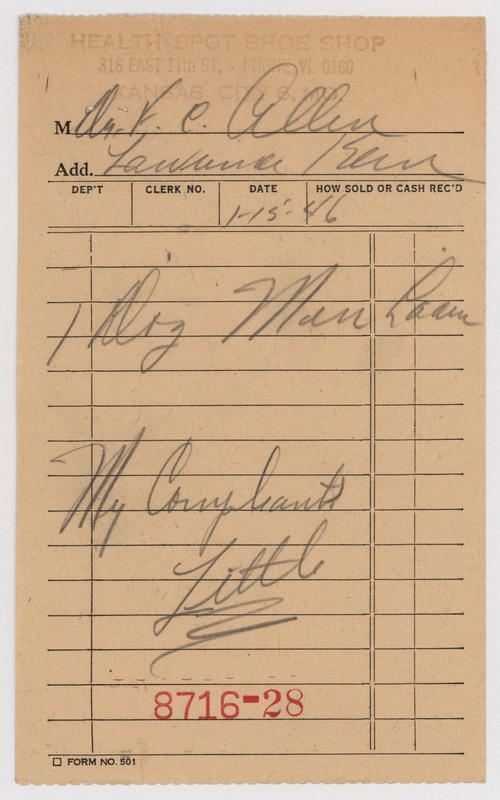 HEALTH SPOT SHOE SHOP
316 EAST 11th ST. - PHONE VI. 0160
KANSAS CITY 6, MO.
M Dr. F. C. Allen
Add. Lawrence Kan
DEP'T CLERK NO. DATE HOW SOLD OR CASH REC'D
1-15-46
1 Doz Men Laces
My Compliants
Little
8716-28
☐ FORM NO. 501